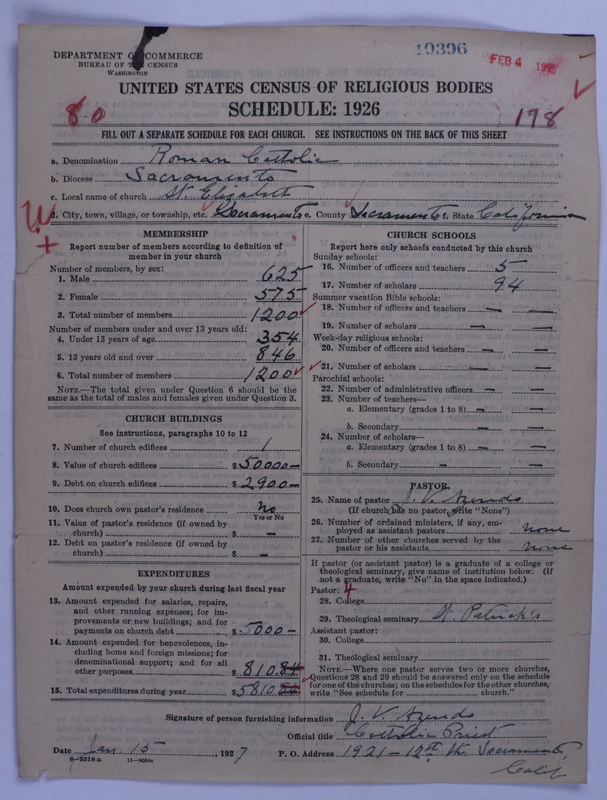 19396
FEB 4
DEPARTMENT OF COMMERCE
BUREAU OF THE CENSUS
WASHINGTON
UNITED STATES CENSUS OF RELIGIOUS BODIES
SCHEDULE: 1926
80
198
FILL OUT A SEPARATE SCHEDULE FOR EACH CHURCH. SEE INSTRUCTIONS ON THE BACK OF THIS SHEET
a. Denomination Roman Catholic
b. Diocese Sacramento
c. Local name of church St. Elizabeth
d. City, town, village, or township, etc. Sacramento e. County Sacramento f. State California
MEMBERSHIP
Report number of members according to definition of
member in your church
Number of members, by sex:
1. Male 625
2. Female 575
3. Total number of members 1200
Number of members under and over 13 years old:
4. Under 13 years of age 354
5. 13 years old and over 846
6. Total number of members 1200
NOTE.—The total given under Question 6 should be the
same as the total of males and females given under Question 3.
CHURCH BUILDINGS
See instructions, paragraphs 10 to 12
7. Number of church edifices 1
8. Value of church edifices $50000—
9. Debt on church edifices $2900—
10. Does church own pastor's residence? No
Yes or No
11. Value of pastor's residence (if owned by
church) $ —
12. Debt on pastor's residence (if owned by
church) $ —
EXPENDITURES
Amount expended by your church during last fiscal year
13. Amount expended for salaries, repairs,
and other running expenses; for im-
provements or new buildings; and for
payments on church debt $5000—
14. Amount expended for benevolences, in-
cluding home and foreign missions; for
denominational support; and for all
other purposes $810.84
15. Total expenditures during year $5810.84
CHURCH SCHOOLS
Report here only schools conducted by this church
Sunday schools:
16. Number of officers and teachers 5
17. Number of scholars 94
Summer vacation Bible schools:
18. Number of officers and teachers — —
19. Number of scholars — —
Week-day religious schools:
20. Number of officers and teachers — —
21. Number of scholars — —
Parochial schools:
22. Number of administrative officers — —
23. Number of teachers—
a. Elementary (grades 1 to 8) — —
b. Secondary — —
24. Number of scholars—
a. Elementary (grades 1 to 8) — —
b. Secondary — —
PASTOR
25. Name of pastor J. V. Azevedo
(If church has no pastor, write "None")
26. Number of ordained ministers, if any, em-
ployed as assistant pastors none
27. Number of other churches served by the
pastor or his assistants none
If pastor (or assistant pastor) is a graduate of a college or
theological seminary, give name of institution below. (If
not a graduate, write "No" in the space indicated.)
Pastor: 4
28. College
29. Theological seminary St. Patrick's
Assistant pastor:
30. College
31. Theological seminary
NOTE.—Where one pastor serves two or more churches,
Questions 28 and 29 should be answered only on the schedule
for one of the churches; on the schedules for the other churches,
write "See schedule for church."
Signature of person furnishing information J. V. Azevedo
Official title Catholic Priest
Date Jan. 15, 1927 P. O. Address 1921—12th St. Sacramento,
Calif
8-5518a 11-9051c